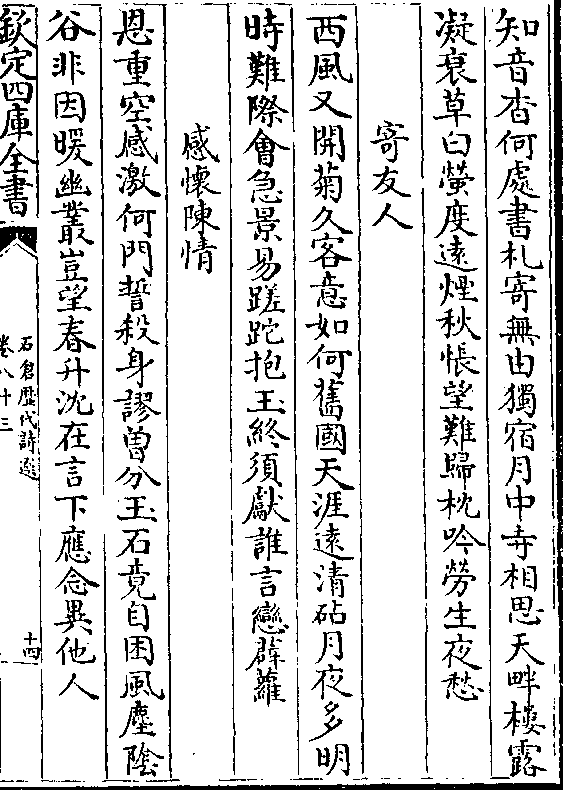 知音杳何處書札寄無由獨宿月中寺相思天畔樓露
凝衰草白螢度遠煙秋悵望難歸枕吟勞生夜愁
寄友人
西風又開菊久客意如何舊國天涯遠清砧月夜多明
時難際會急景易蹉跎抱玉終須獻誰言戀薜蘿
感懷陳情
恩重空感激何門誓殺身謬曽分玉石竟自困風塵陰
谷非因暖幽叢豈望春升沈在言下應念異他人
欽定四庫全書
石倉歷代詩選
卷八十三
十四